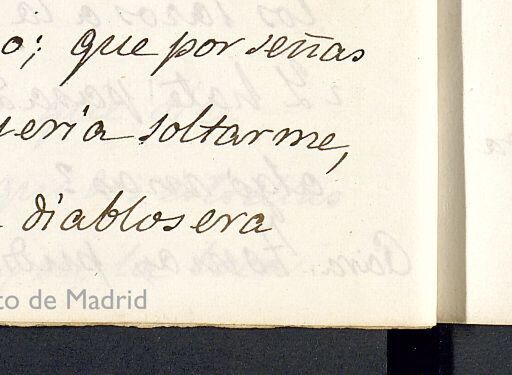 o; que por señas
ería soltarme,
diablos era
to de Madrid